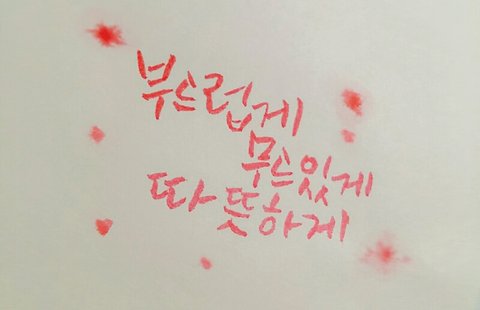 부드럽게
무드있게
따뜻하게